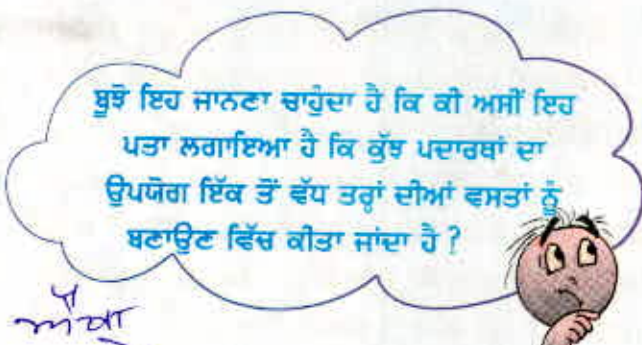 ਬੂਝੋ ਇਹ ਜਾਨਣਾ ਚਾਹੁੰਦਾ ਹੈ ਕਿ ਕੀ ਅਸੀਂ ਇਹ
ਪਤਾ ਲਗਾਇਆ ਹੈ ਕਿ ਕੁੱਝ ਪਦਾਰਥਾਂ ਦਾ
ਉਪਯੋਗ ਇੱਕ ਤੋਂ ਵੱਧ ਤਰ੍ਹਾਂ ਦੀਆਂ ਵਸਤਾਂ ਨੂੰ
ਬਣਾਉਣ ਵਿੱਚ ਕੀਤਾ ਜਾਂਦਾ ਹੈ ?